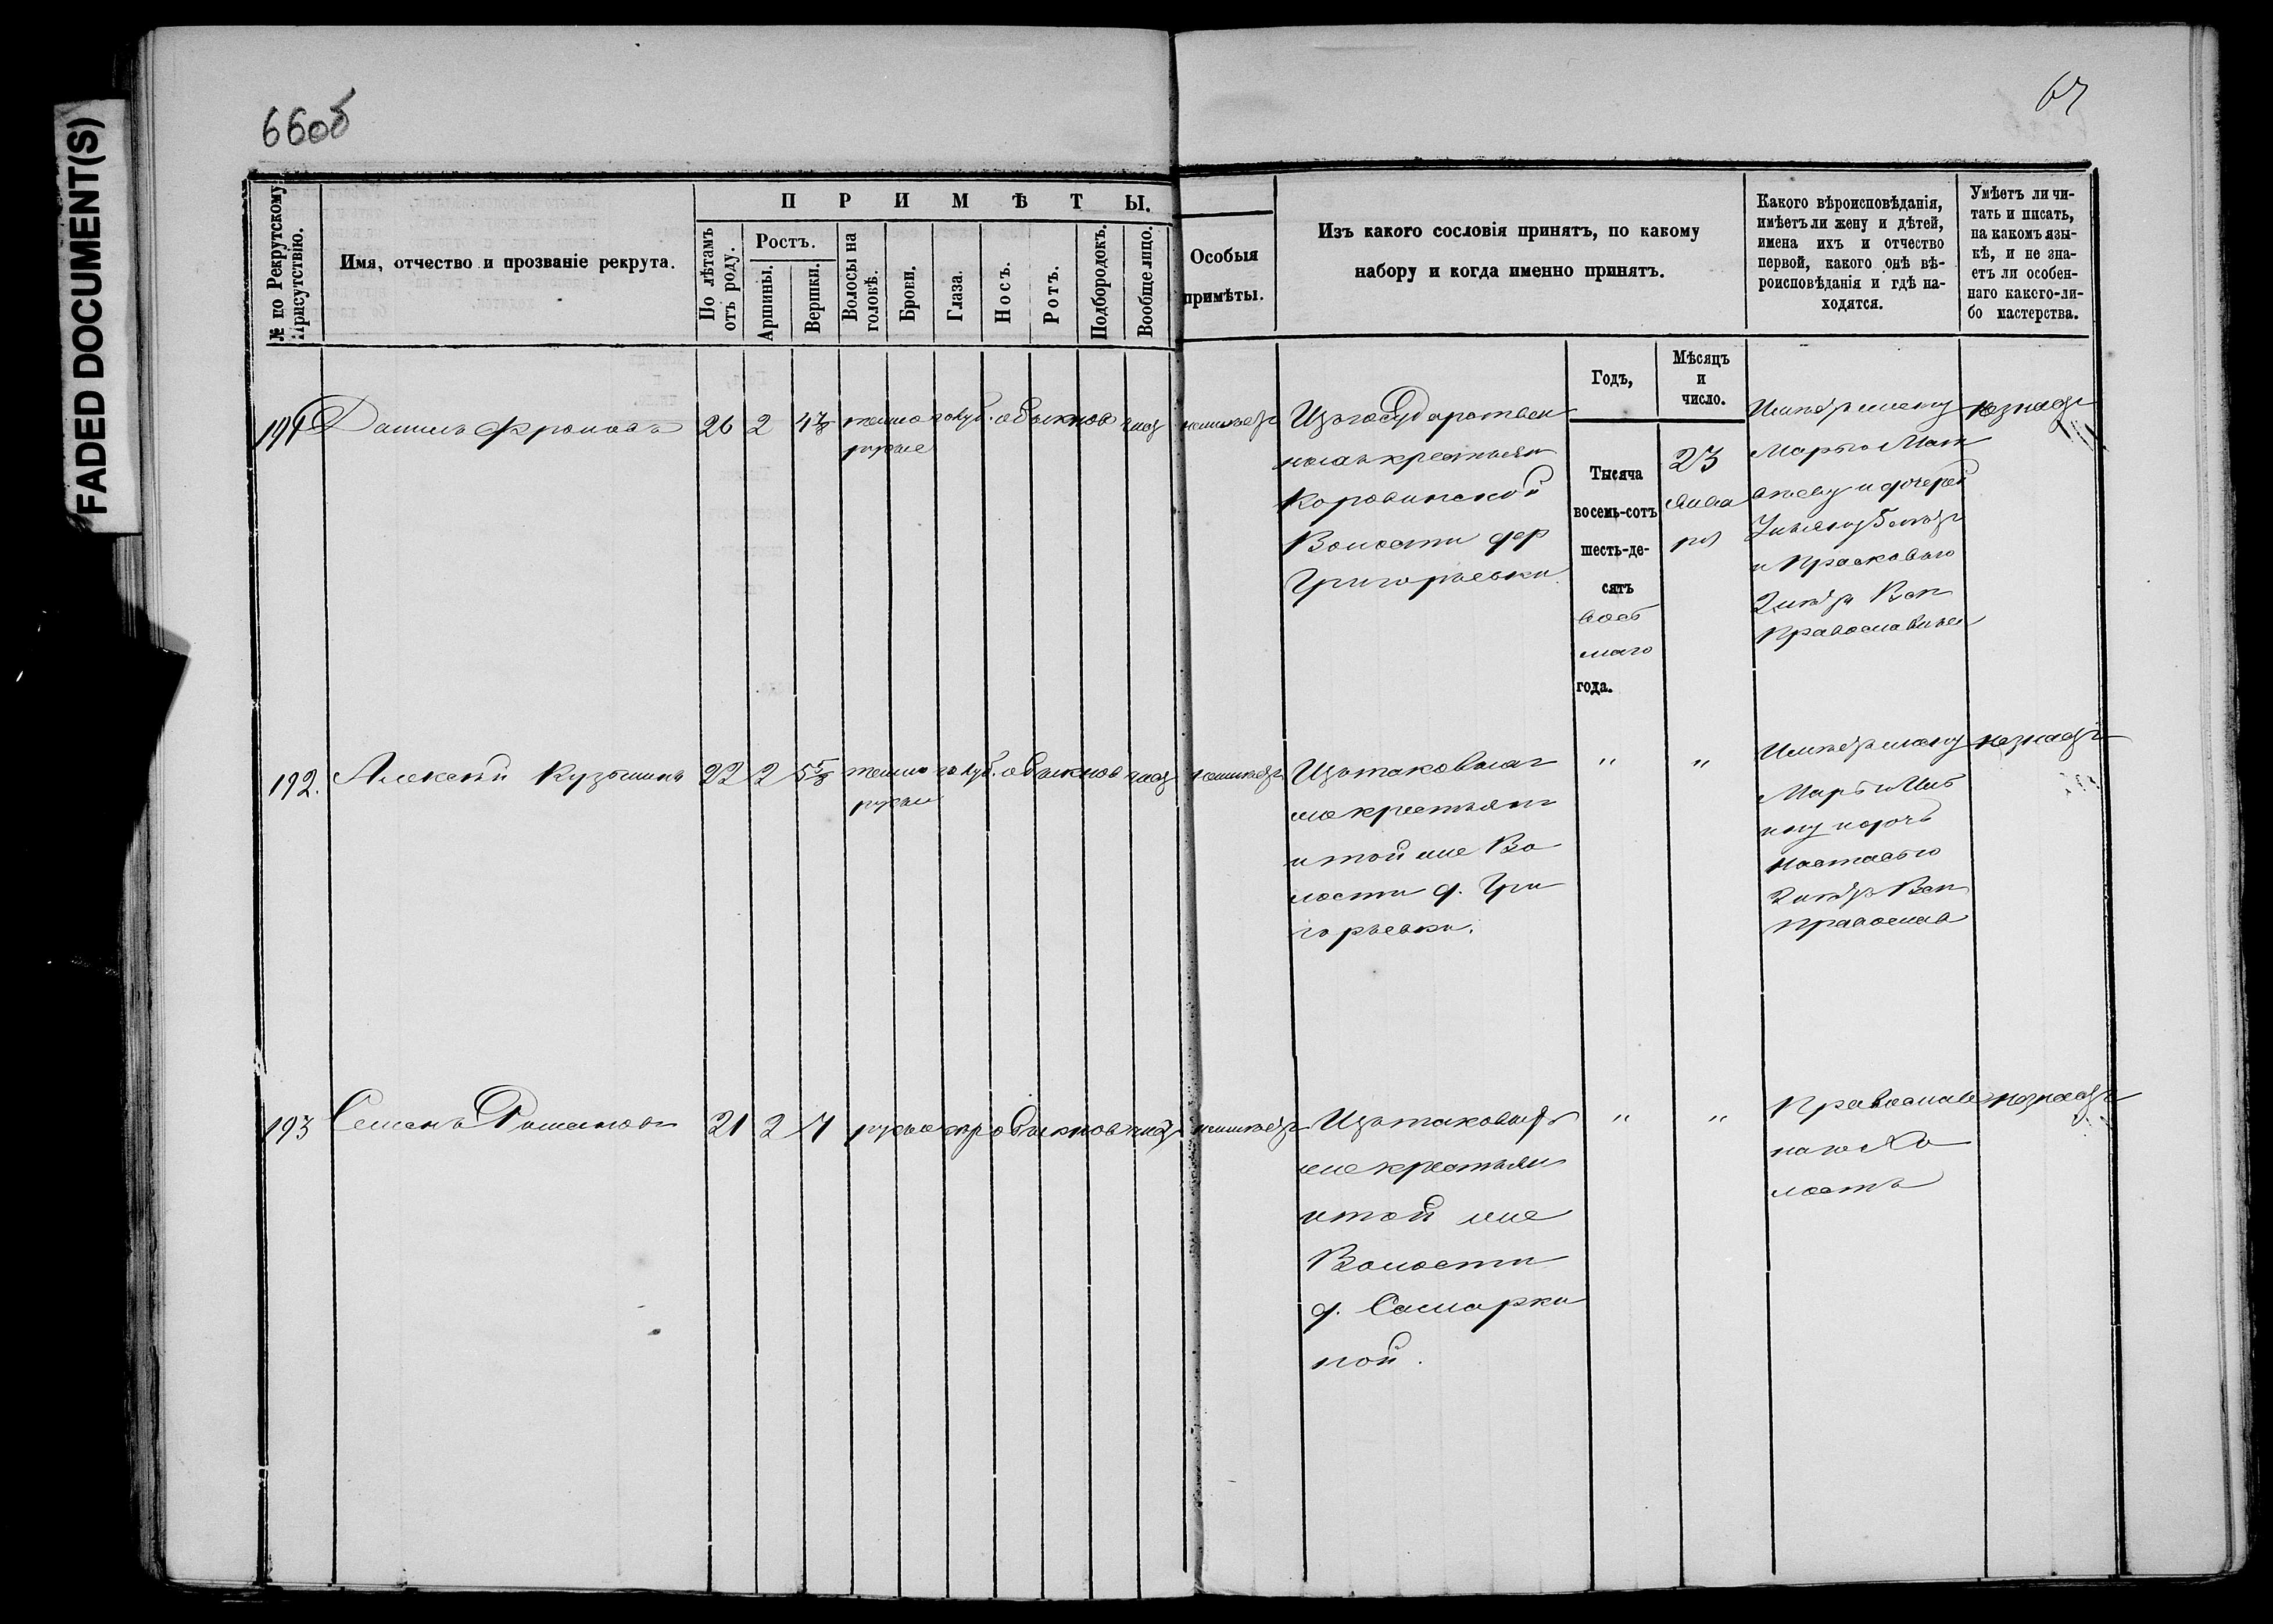 FADED DOCUMENT(S)
66об
67
№ по Рекрутскому Присутствію.
Имя, отчество и прозваніе рекрута.
ПРИМѢТЫ.
По лѣтамъ отъ роду.
Ростъ.
Аршины.
Вершки.
Волосы на головѣ.
Брови.
Глаза.
Носъ.
Ротъ.
Подбородокъ.
Вообще лицо.
Особыя
примѣты.
Изъ какого сословія принятъ, по какому
набору и когда именно принятъ.
Какого вѣроисповѣданія,
имѣетъ ли жену и дѣтей,
имена ихъ и отчество
первой, какого онѣ вѣ-
роисповѣданія и гдѣ на-
ходятся.
Умѣетъ ли чи-
тать и писать,
на какомъ язы-
кѣ, и не зна-
етъ ли особен-
наго какого-ли-
бо мастерства.
Годъ,
Мѣсяцъ
и
число.
191 26 2 4 7/8 темно голуб. обыкнов чист неимѣетъ
русые
Изъ государствен
ныхъ крестьян
Коровинской
Волости дер
Григорьевки
Тысяча
восемь-сотъ
шесть-де-
сятъ
вось
маго
года.
23
Янва
ря
Имѣетъ жену
Марью Мат
вѣеву и дочерей
и Прасковью
2 лѣтъ Всп
Православные
незнаетъ
192. Алексѣй Кузьминъ 22 2 5 5/8 темно голуб. обыкнов чист неимѣетъ
русые
Изъ таковыхъ
же крестьянъ
и той же Во
лости д. Гри
горьевки.
" "
Имѣетъ жену
и дочь
Настасью
2 лѣтъ Всп
Православ
незнаетъ
193 Семенъ Романовъ 21 2 4 русые сер обыкнов чист неимѣетъ
Изъ таковыхъ
же крестьян
и той же
Волости
д. Самарки
ной.
" "
Православ
наго Хо
лостъ
незнаетъ